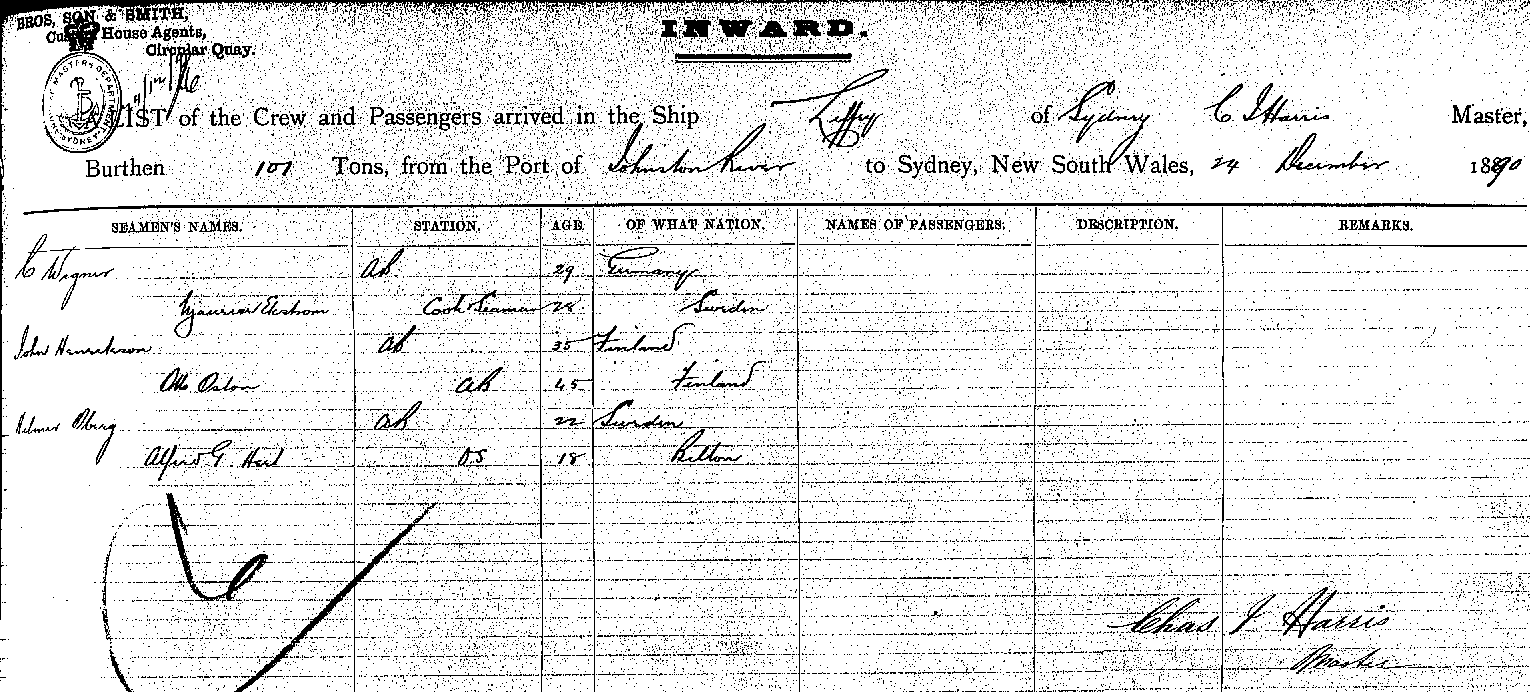 BROS, SON & SMITH,
House Agents,
Circular Quay.
INWARD.
MASTERS DEPARTMENT SYDNEY
A LIST of the Crew and Passengers arrived in the Ship Liffey of Sydney C I Harris Master,
Burthen 107 Tons, from the Port of Johnston River to Sydney, New South Wales, 24 December 1890
SEAMEN'S NAMES. STATION. AGE OF WHAT NATION. NAMES OF PASSENGERS. DESCRIPTION. REMARKS.
C Wigner AB 29 Germany
Ekstrom Cook & Seaman Sweden
John Henrickson AB 35 Finland
Otto AB 45 Finland
Hilmer Oberg AB 22 Sweden
Alfred G. OS 18
6
Chas I Harris
Master